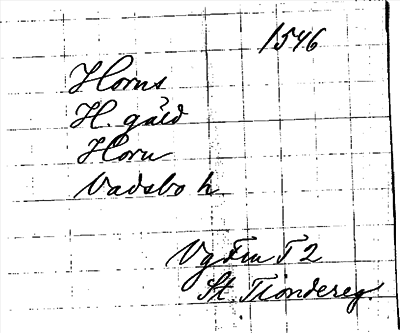 1546
Horns
H. gäld
Horn
Vadsbo h
Vg Fru T 2
St. Tiondereg.